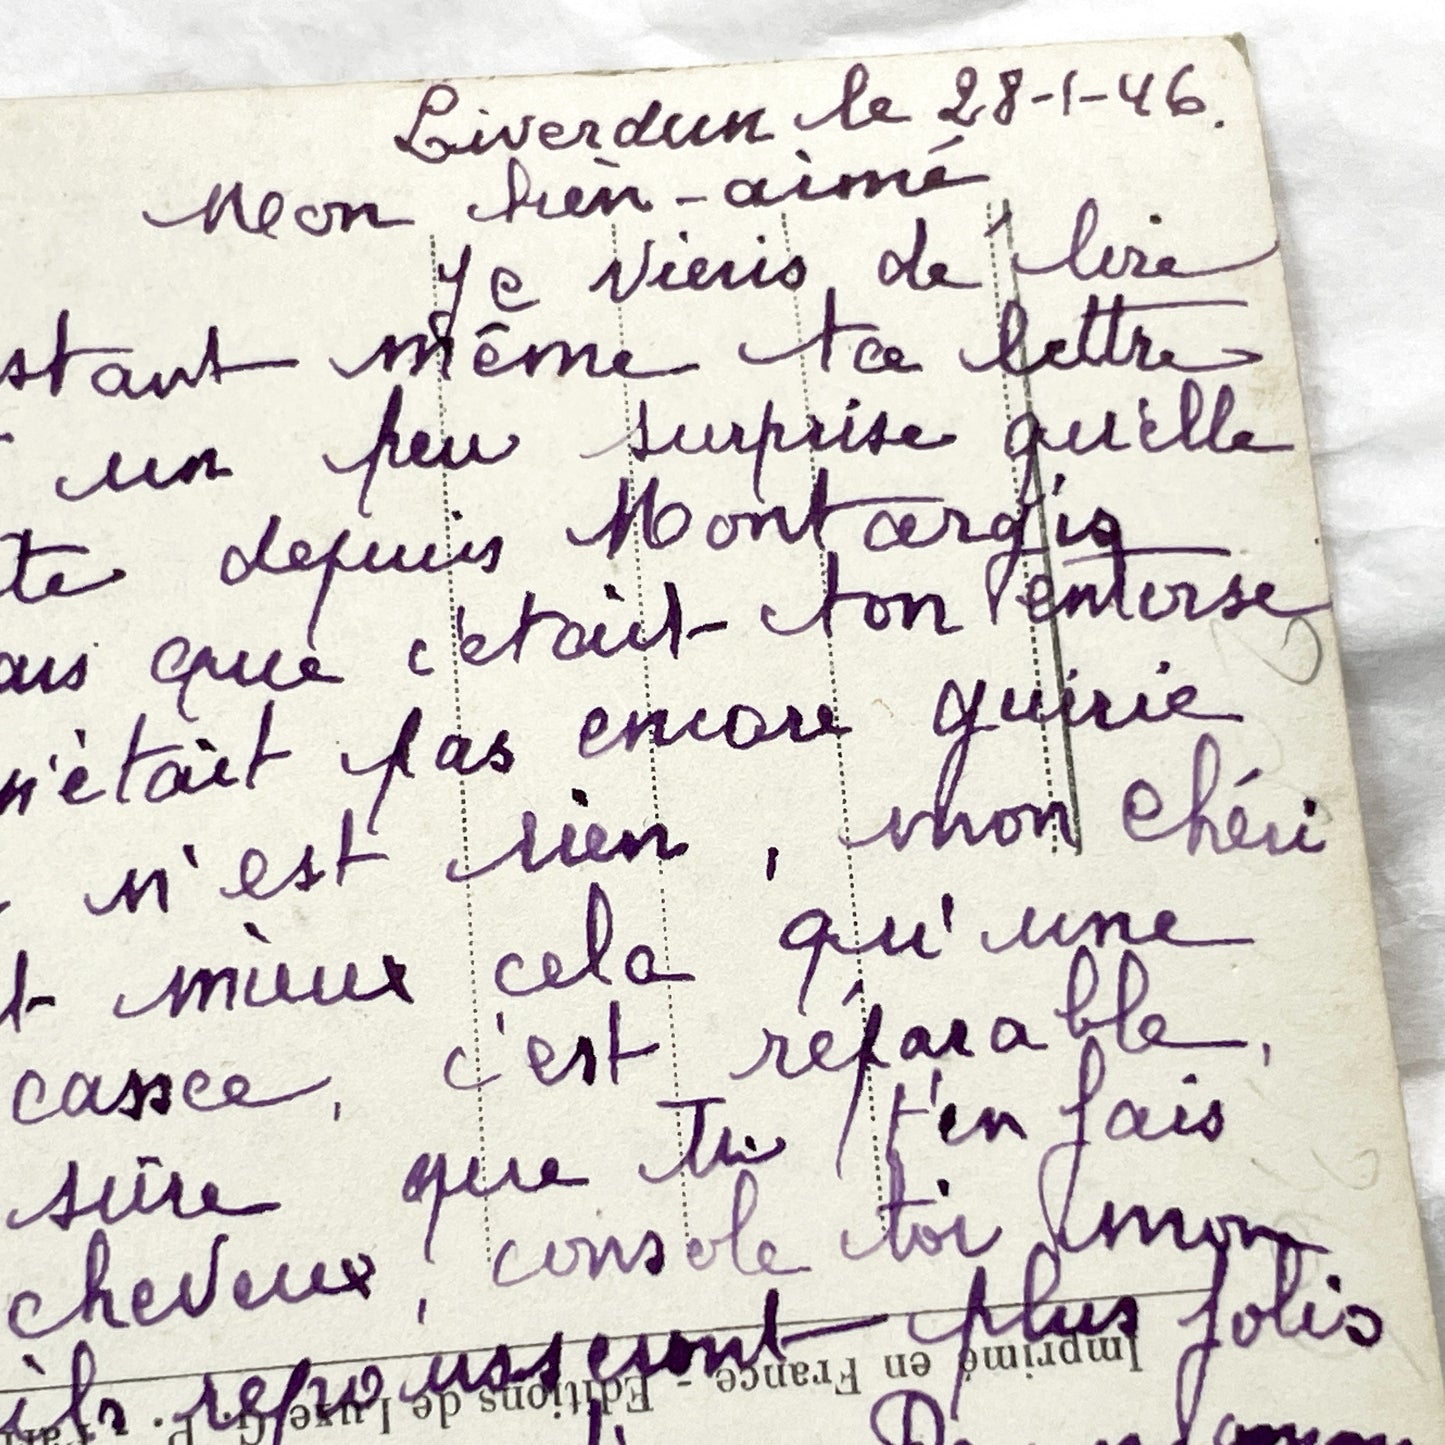 Liverdun le 28-1-46.
Mon bien-aimé
Je viens de lire
stant même ta lettre
un peu surprise qu'elle
te depuis Montargis
ais que c'était ton entorse
n'était pas encore guirie
n'est rien, mon chéri
t mieux cela qu'une
cassée, c'est réparable,
sûre que Tu t'en fais
cheveux, console toi mon
ils repousseront plus jolis
Imprimé en France - Editions de Luxe G. P.